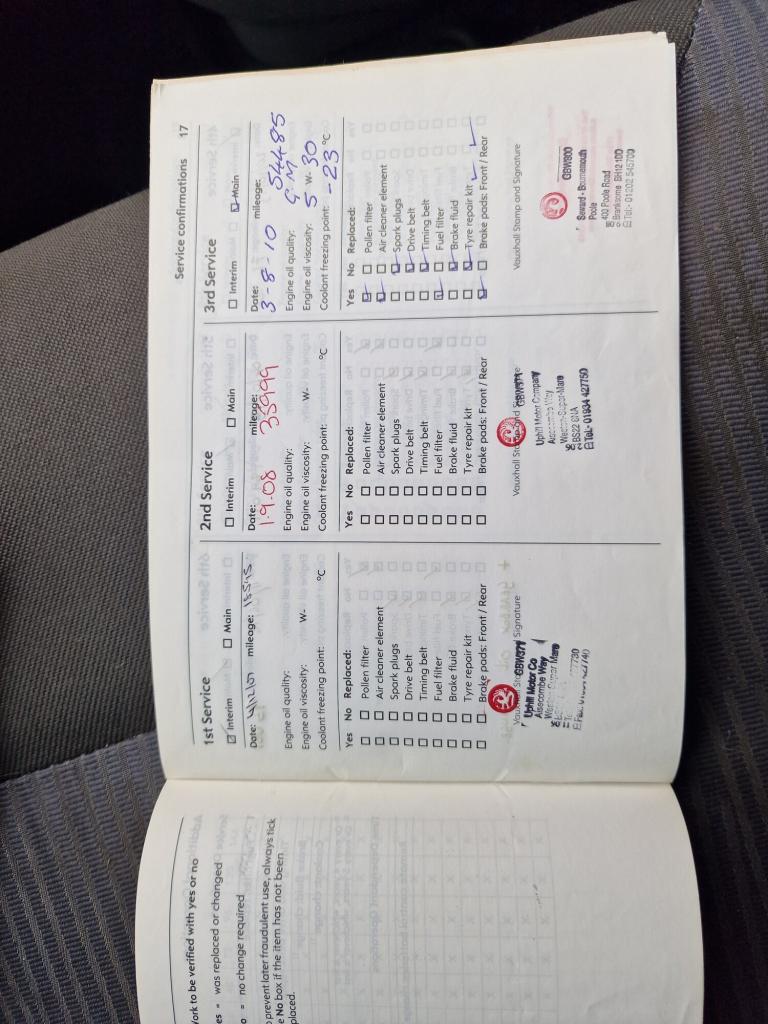 Work to be verified with yes or no
= was replaced or changed
= no change required
prevent later fraudulent use, always tick
No box if the item has not been
Service confirmations 17
1st Service
Interim Main
Date: mileage:
Engine oil quality:
Engine oil viscosity: W-
Coolant freezing point: °C
Yes No Replaced:
Pollen filter
Air cleaner element
Spark plugs
Drive belt
Timing belt
Fuel filter
Brake fluid
Tyre repair kit
Brake pads: Front / Rear
Signature
GBW371
Uphill Motor Co
Aisecombe Way
2nd Service
Interim Main
Date: mileage:
1.9.08 35999
Engine oil quality:
Engine oil viscosity: W-
Coolant freezing point: °C
Yes No Replaced:
Pollen filter
Air cleaner element
Spark plugs
Drive belt
Timing belt
Fuel filter
Brake fluid
Tyre repair kit
Brake pads: Front / Rear
Vauxhall Stamp and Signature
Uphill Motor Company
Way
Weston-Super-Mare
BS22 6NA
Tel: 01934 427750
3rd Service
Interim Main
Date: mileage:
3-8-10 54485
Engine oil quality: GM
Engine oil viscosity: 5 W- 30
Coolant freezing point: -23 °C
Yes No Replaced:
Pollen filter
Air cleaner element
Spark plugs
Drive belt
Timing belt
Fuel filter
Brake fluid
Tyre repair kit
Brake pads: Front / Rear
Vauxhall Stamp and Signature
GBW800
Seward - Bournemouth
Poole
400 Poole Road
Branksome BH12 1DD
Tel: 01202 545700